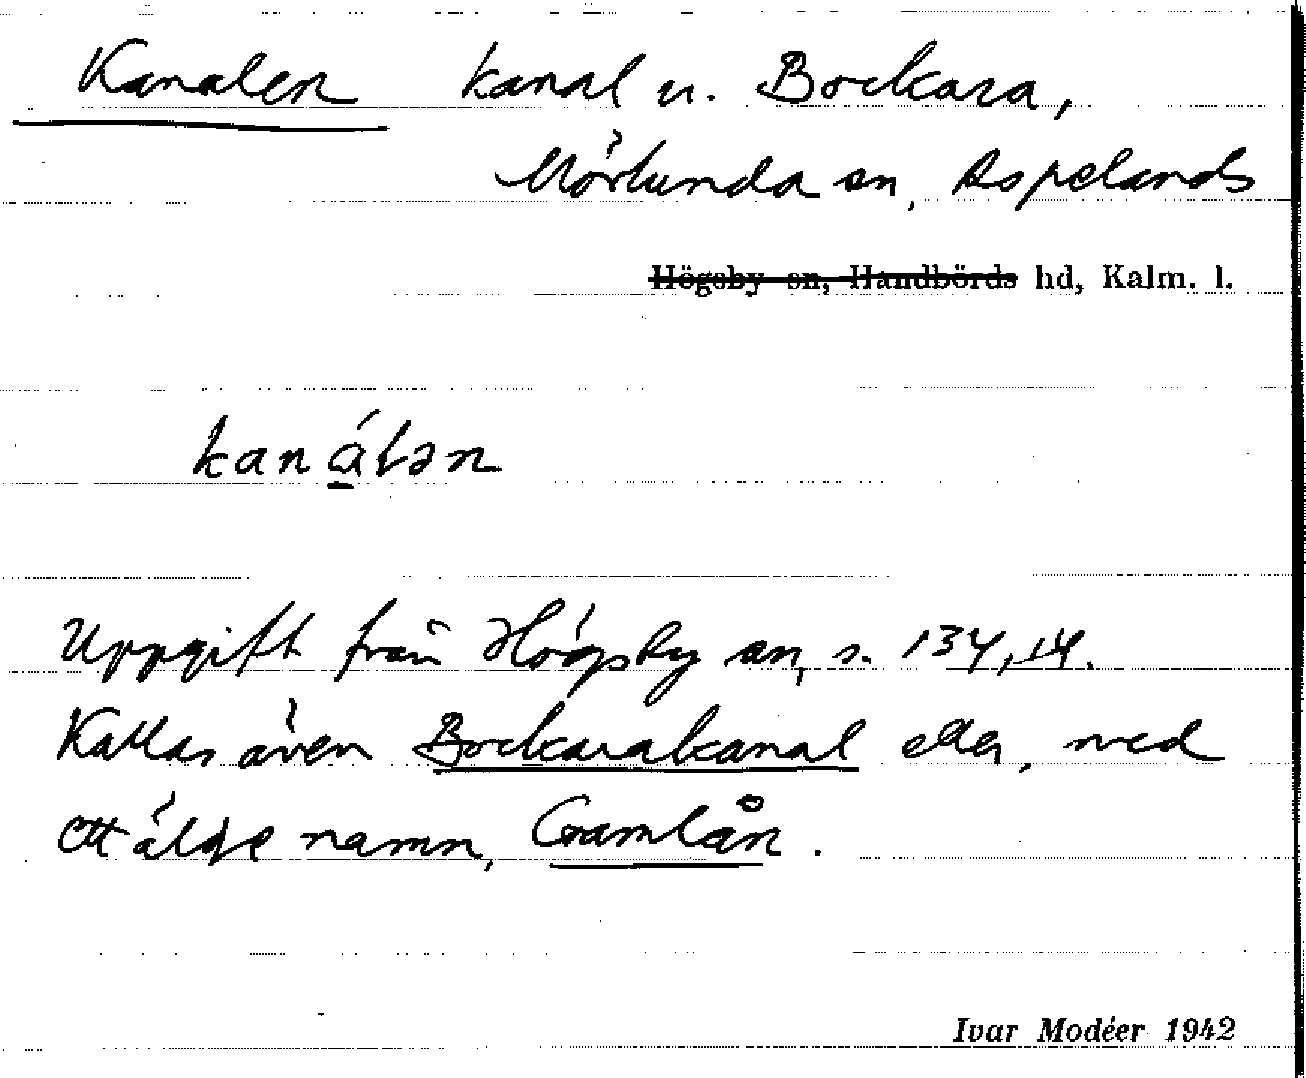 Kanalen kanal u. Bockara,
Mörlunda sn, Aspelands
Högsby sn, Handbörds hd, Kalm. l.
kanálən
Uppgift från Högsby sn, s. 134, 14.
Kallas även Bockarakanal eller, med
ett äldre namn, Gamlån.
Ivar Modéer 1942